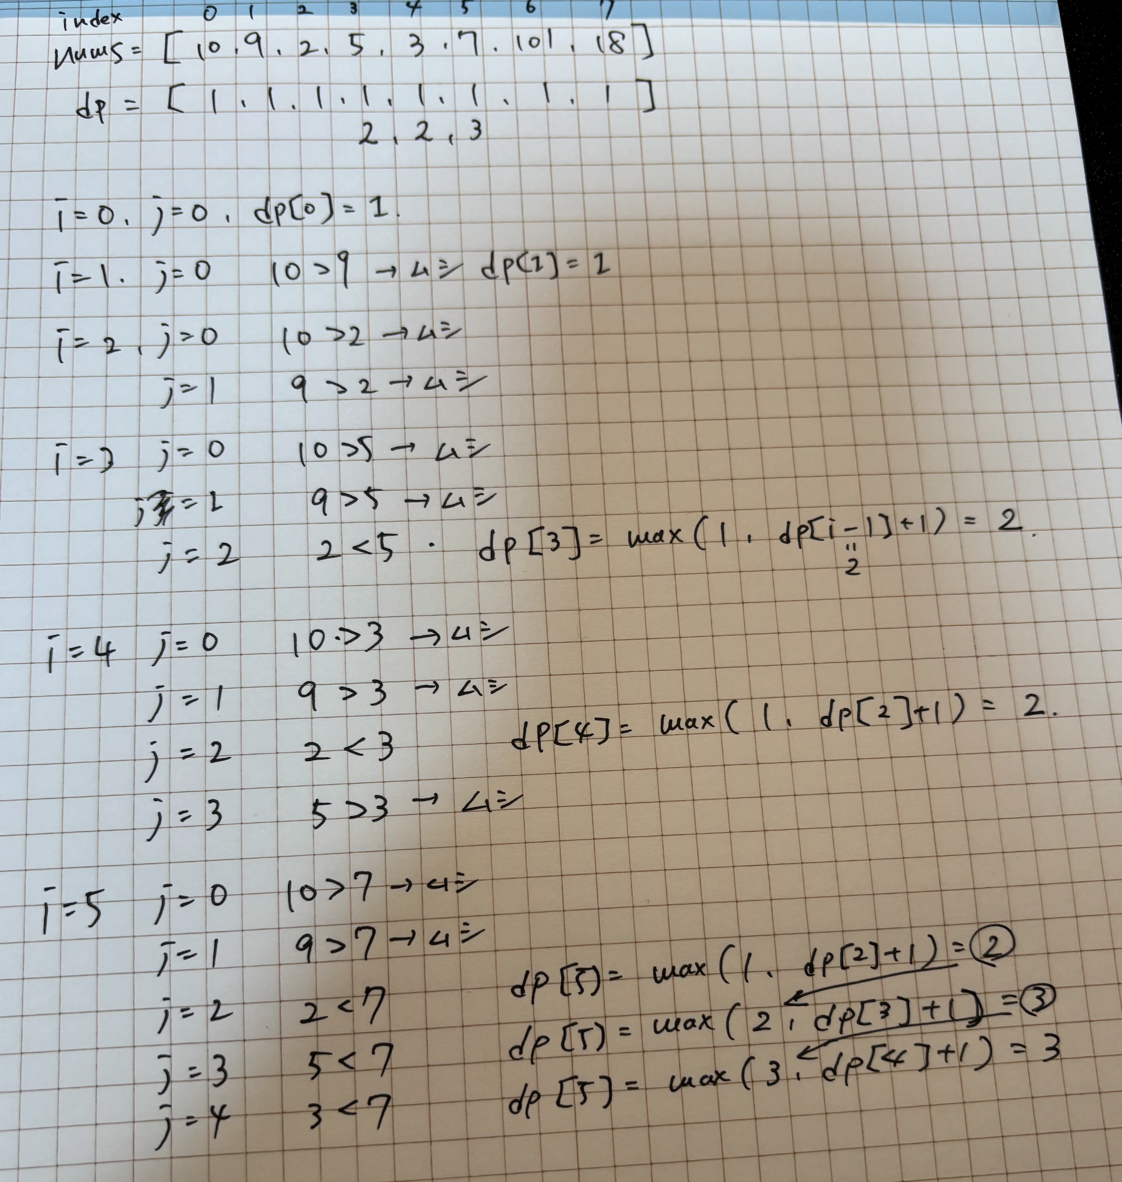 index 0 1 2 3 4 5 6 7
nums = [ 10, 9, 2, 5, 3, 7, 101, 18 ]
dp = [ 1, 1, 1, 1, 1, 1, 1, 1 ]
2, 2, 3
i=0, j=0, dp[0] = 1.
i=1. j=0 10>9 → dp[1] = 1
i=2, j=0 10>2 →
j=1 9>2 →
i=3 j=0 10>5 →
j=1 9>5 →
j=2 2<5 . dp[3] = max(1, dp[i-1]+1) = 2.
"
2
i=4 j=0 10>3 →
j=1 9>3 →
j=2 2<3 dp[4] = max(1, dp[2]+1) = 2.
j=3 5>3 →
i=5 j=0 10>7 →
j=1 9>7 →
j=2 2<7 dp[5] = max(1, dp[2]+1) = 2
j=3 5<7 dp[5] = max(2, dp[3]+1) = 3
j=4 3<7 dp[5] = max(3, dp[4]+1) = 3